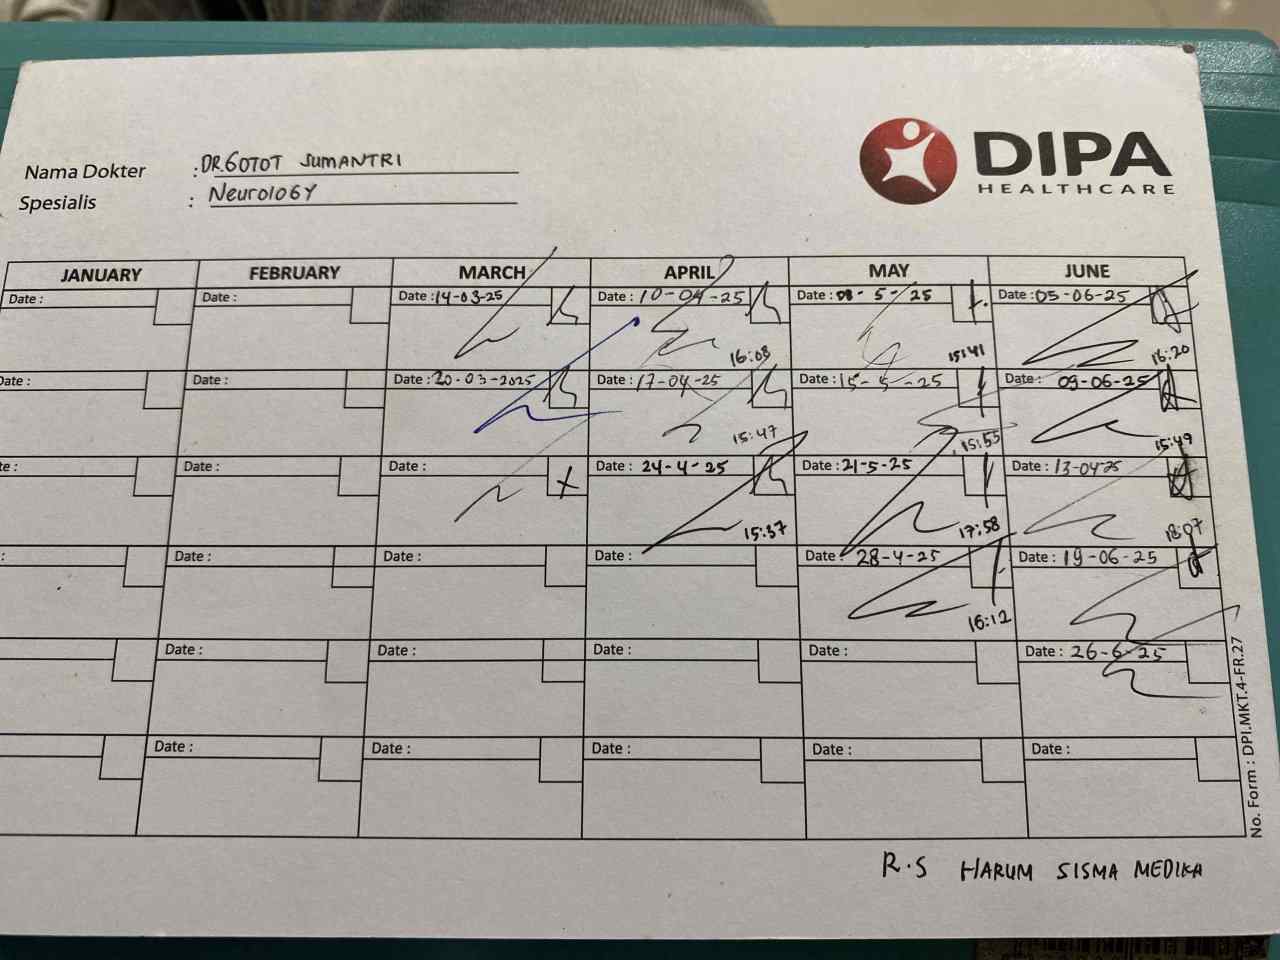 DIPA
HEALTHCARE
Nama Dokter : DR.GOTOT SUMANTRI
Spesialis : Neurology
JANUARY FEBRUARY MARCH APRIL MAY JUNE
Date : Date : Date : 14-03-25 Date : 10-04-25 Date : 08-5-25 Date : 05-06-25
16:08 15:41 16:20
Date : Date : Date : 20-03-2025 Date : 17-04-25 Date : 15-5-25 Date : 09-06-25
15:47 15:55 15:49
te : Date : Date : Date : 24-4-25 Date : 21-5-25 Date : 13-04-25
15:37 17:58 18:07
: Date : Date : Date : Date : 28-4-25 Date : 19-06-25
16:12
Date : Date : Date : Date : Date : 26-6-25
Date : Date : Date : Date : Date :
No. Form : DPI.MKT.4-FR.27
R.S HARUM SISMA MEDIKA